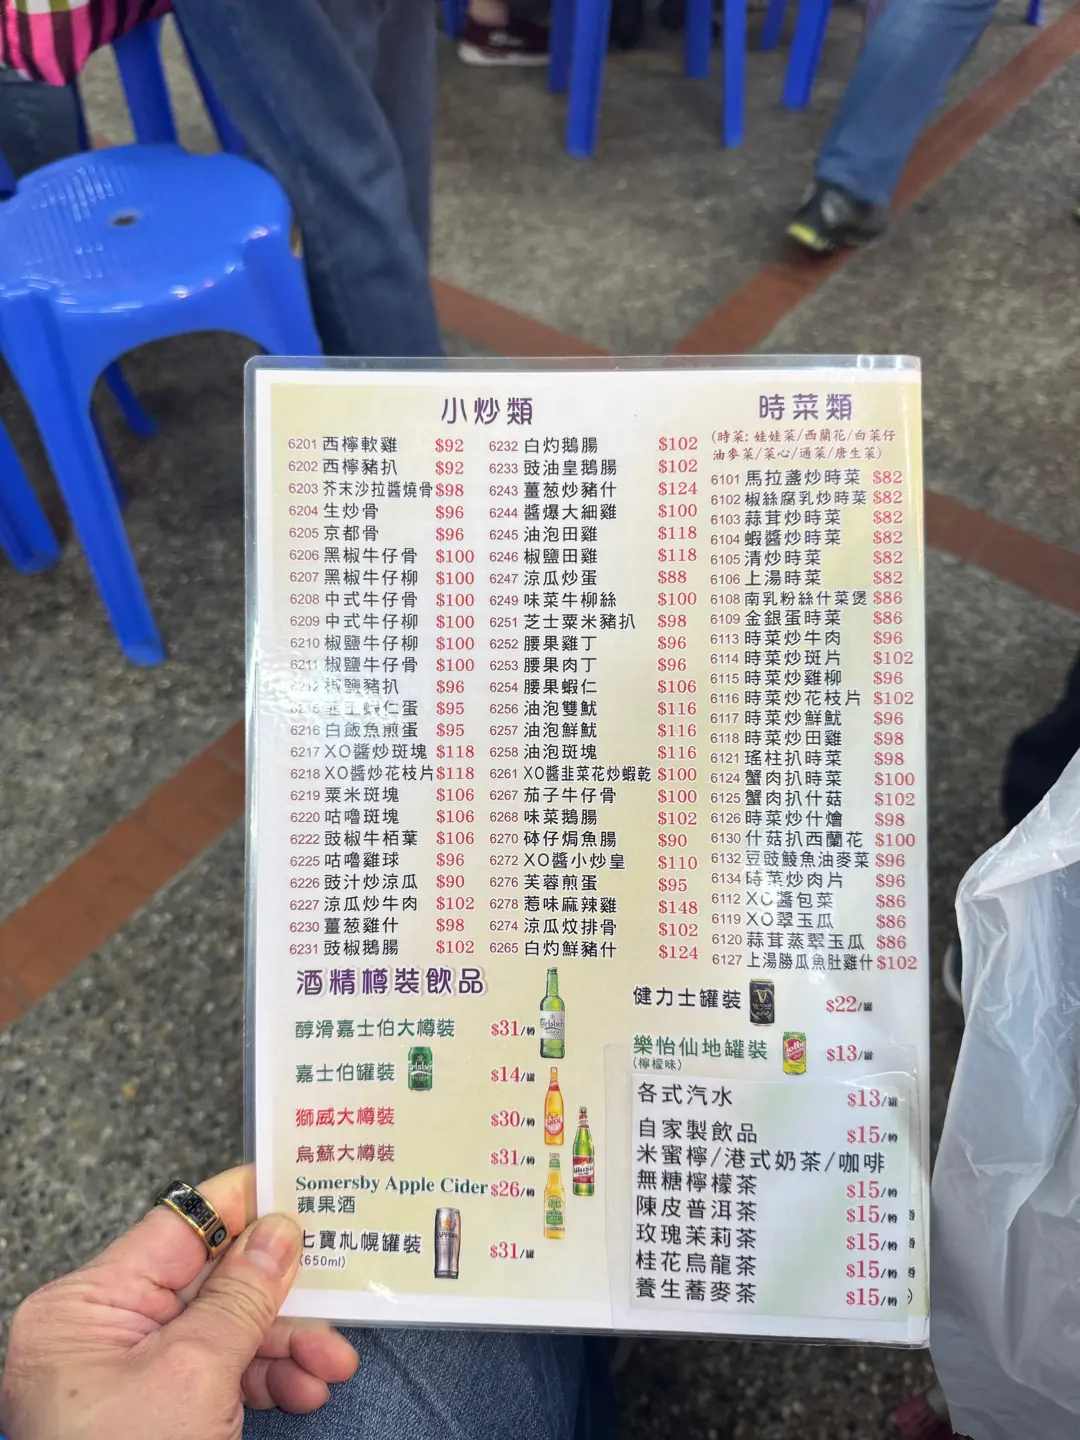 小炒類
6201 西檸軟雞 $92
6202 西檸豬扒 $92
6203 芥末沙拉醬燒骨 $98
6204 生炒骨 $96
6205 京都骨 $96
6206 黑椒牛仔骨 $100
6207 黑椒牛仔柳 $100
6208 中式牛仔骨 $100
6209 中式牛仔柳 $100
6210 椒鹽牛仔柳 $100
6211 椒鹽牛仔骨 $100
6212 椒鹽豬扒 $96
6215 韮王蝦仁蛋 $95
6216 白飯魚煎蛋 $95
6217 XO醬炒斑塊 $118
6218 XO醬炒花枝片 $118
6219 粟米斑塊 $106
6220 咕嚕斑塊 $106
6222 豉椒牛栢葉 $106
6225 咕嚕雞球 $96
6226 豉汁炒涼瓜 $90
6227 涼瓜炒牛肉 $102
6230 薑葱雞什 $98
6231 豉椒鵝腸 $102
6232 白灼鵝腸 $102
6233 豉油皇鵝腸 $102
6243 薑葱炒豬什 $124
6244 醬爆大細雞 $100
6245 油泡田雞 $118
6246 椒鹽田雞 $118
6247 涼瓜炒蛋 $88
6249 味菜牛柳絲 $100
6251 芝士粟米豬扒 $98
6252 腰果雞丁 $96
6253 腰果肉丁 $96
6254 腰果蝦仁 $106
6256 油泡雙魷 $116
6257 油泡鮮魷 $116
6258 油泡斑塊 $116
6261 XO醬韭菜花炒蝦乾 $100
6267 茄子牛仔骨 $100
6268 味菜鵝腸 $102
6270 砵仔焗魚腸 $90
6272 XO醬小炒皇 $110
6276 芙蓉煎蛋 $95
6278 惹味麻辣雞 $148
6274 涼瓜炆排骨 $102
6265 白灼鮮豬什 $124
時菜類
(時菜: 娃娃菜/西蘭花/白菜仔
油麥菜/菜心/通菜/唐生菜)
6101 馬拉盞炒時菜 $82
6102 椒絲腐乳炒時菜 $82
6103 蒜茸炒時菜 $82
6104 蝦醬炒時菜 $82
6105 清炒時菜 $82
6106 上湯時菜 $82
6108 南乳粉絲什菜煲 $86
6109 金銀蛋時菜 $86
6113 時菜炒牛肉 $96
6114 時菜炒斑片 $102
6115 時菜炒雞柳 $96
6116 時菜炒花枝片 $102
6117 時菜炒鮮魷 $96
6118 時菜炒田雞 $98
6121 瑤柱扒時菜 $98
6124 蟹肉扒時菜 $100
6125 蟹肉扒什菇 $102
6126 時菜炒什燴 $98
6130 什菇扒西蘭花 $100
6132 豆豉鯪魚油麥菜 $96
6134 時菜炒肉片 $96
6112 XO醬包菜 $86
6119 XO翠玉瓜 $86
6120 蒜茸蒸翠玉瓜 $86
6127 上湯勝瓜魚肚雞什 $102
酒精樽裝飲品
醇滑嘉士伯大樽裝 $31/樽
嘉士伯罐裝 $14/罐
獅威大樽裝 $30/樽
烏蘇大樽裝 $31/樽
Somersby Apple Cider $26/樽
蘋果酒
七寶札幌罐裝 $31/罐
(650ml)
健力士罐裝 $22/罐
樂怡仙地罐裝 $13/罐
(檸檬味)
各式汽水 $13/罐
自家製飲品 $15/樽
米蜜檸/港式奶茶/咖啡
無糖檸檬茶 $15/樽
陳皮普洱茶 $15/樽
玫瑰茉莉茶 $15/樽
桂花烏龍茶 $15/樽
養生蕎麥茶 $15/樽